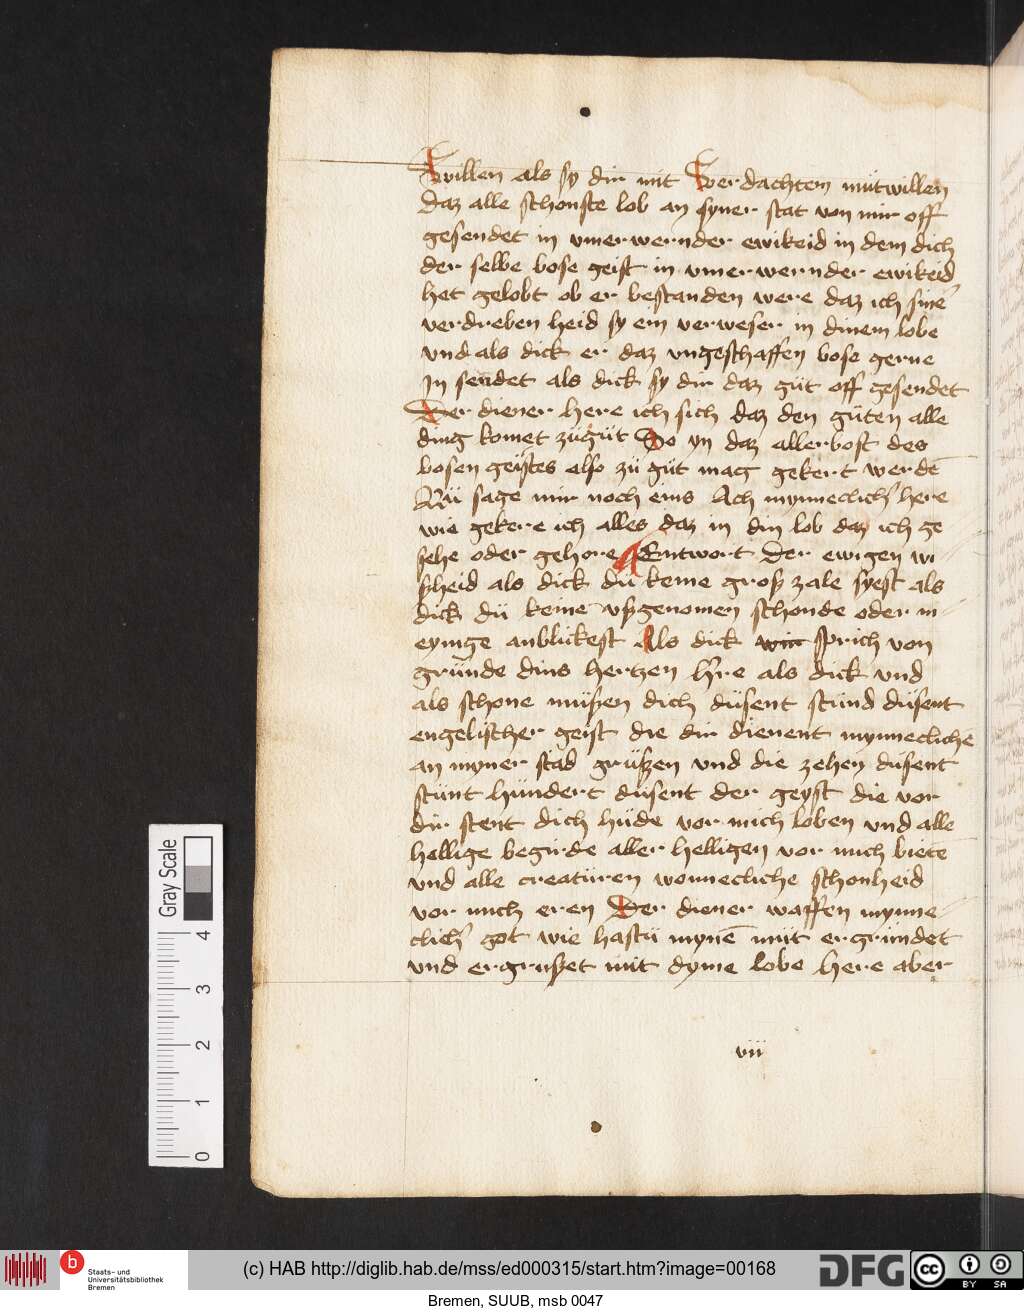 Willen als sy dir mit Verdachtem mütwillen
daz alle schonste lob an syner stat von mir off
gesendet in vmerwernder ewikeid in dem dich
der selbe bose geist in vmerwernder ewikeid
het gelobt ob er bestanden were daz ich sine͂
verdreben heid sy ein verweser in dinem lobe
vnd als dick er daz vngeschaffen bose gerne
In sendet als dick sy dir daz güt off gesendet
Der diener here ich sich daz den güten alle
ding komet zü güt So yn daz allerbost des
bosen geistes also zü güt mag gekert werde͂
Nü sage mir noch eins Ach mynneclich' here
wie gekere ich alles daz in din lob daz ich ge
sehe oder gehore Entwort Der ewigen wi
sheid als dick dü keine grosz zale syest als
dick dü keine vszgenomen schonde oder in
eynige anblickest Als dick sprich von
gründe dins hertzen h're als dick vnd
als schone müszen dich düsent stünd düsent
engelischer geist die dir dienent mynnecliche
an myner stad grüszen vnd die zehen düsent
stünt hündert düsent der geyst die vor
dir stent dich hüde vor mich loben vnd alle
hellige begirde aller helligen vor mich biete
vnd alle creatüren wonnecliche schonheid
vor mich eren Der diener waffen mynne
clich' got wie hastü myne͂ müt ergründet
vnd ergruszet mit dyme lobe here aber
vii
Gray Scale
4
3
2
1
0
b
Staats- und
Universitätsbibliothek
Bremen
(c) HAB http://diglib.hab.de/mss/ed000315/start.htm?image=00168
DFG
cc
BY SA
Bremen, SUUB, msb 0047